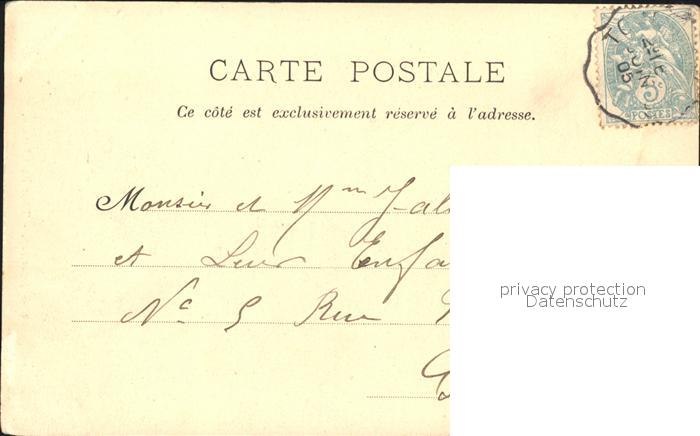 CARTE POSTALE
Ce côté est exclusivement réservé à l'adresse.
5c
POSTES
05
Monsieur et Mme
et Leurs
privacy protection
Datenschutz
No 5 Rue